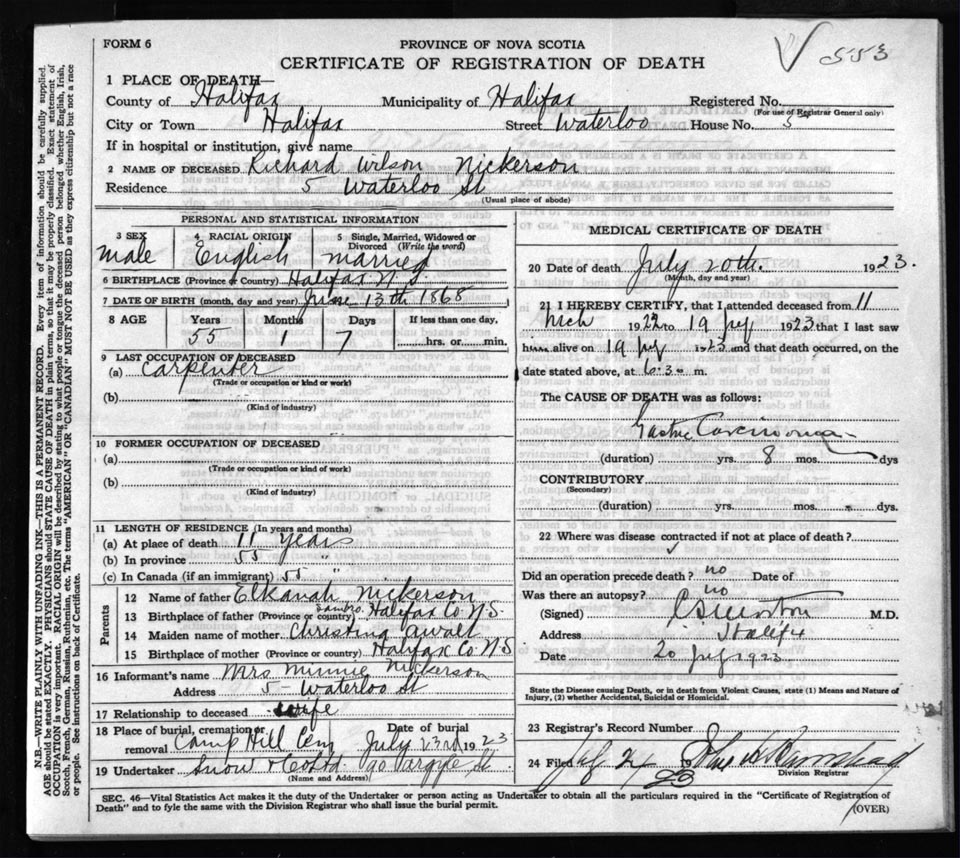 FORM 6
PROVINCE OF NOVA SCOTIA
CERTIFICATE OF REGISTRATION OF DEATH
553
1 PLACE OF DEATH—
County of Halifax Municipality of Halifax Registered No.
(For use of Registrar General only)
City or Town Halifax Street Waterloo House No. 5
If in hospital or institution, give name
2 NAME OF DECEASED Richard Wilson Nickerson
Residence 5 Waterloo St
(Usual place of abode)
PERSONAL AND STATISTICAL INFORMATION
3 SEX 4 RACIAL ORIGIN 5 Single, Married, Widowed or Divorced (Write the word)
Male English married
6 BIRTHPLACE (Province or Country) Halifax N.S.
7 DATE OF BIRTH (month, day and year) June 13th 1868
8 AGE Years Months Days If less than one day,
55 1 7 hrs. or min.
9 LAST OCCUPATION OF DECEASED
(a) Carpenter
(Trade or occupation or kind or work)
(b)
(Kind of industry)
10 FORMER OCCUPATION OF DECEASED
(a)
(Trade or occupation or kind of work)
(b)
(Kind of industry)
11 LENGTH OF RESIDENCE (In years and months)
(a) At place of death 11 years
(b) In province 55 "
(c) In Canada (if an immigrant) 55 "
Parents
12 Name of father Elkanah Nickerson
13 Birthplace of father (Province or country) Sambro. Halifax Co N.S.
14 Maiden name of mother Christina Awalt
15 Birthplace of mother (Province or country) Halifax Co N.S
16 Informant's name Mrs Minnie Nickerson
Address 5 - Waterloo St
17 Relationship to deceased wife
18 Place of burial, cremation or removal Camp Hill Cem Date of burial July 23rd 1923
19 Undertaker Snow & Co Ltd 90 Argyle St
(Name and Address)
MEDICAL CERTIFICATE OF DEATH
20 Date of death July 20th. 1923.
(Month, day and year)
21 I HEREBY CERTIFY, that I attended deceased from 11
Mch 1922 to 19 July 1923 that I last saw
him alive on 19 July 1923 and that death occurred, on the
date stated above, at 6.30 m.
The CAUSE OF DEATH was as follows:
Gastric Carcinoma
(duration) yrs. 8 mos. dys
CONTRIBUTORY
(Secondary)
(duration) yrs. mos. dys.
22 Where was disease contracted if not at place of death?
Did an operation precede death? no Date of
Was there an autopsy? no
(Signed) M.D.
Address Halifx
Date 20 July 1923
State the Disease causing Death, or in death from Violent Causes, state (1) Means and Nature of Injury, (2) whether Accidental, Suicidal or Homicidal.
23 Registrar's Record Number
24 Filed July 24 1923
Division Registrar
SEC. 46—Vital Statistics Act makes it the duty of the Undertaker or person acting as Undertaker to obtain all the particulars required in the "Certificate of Registration of
Death" and to fyle the same with the Division Registrar who shall issue the burial permit.
(OVER)
N.B.—WRITE PLAINLY WITH UNFADING INK—THIS IS A PERMANENT RECORD. Every item of information should be carefully supplied.
AGE should be stated EXACTLY. PHYSICIANS should STATE CAUSE OF DEATH in plain terms, so that it may be properly classified. Exact statement of
OCCUPATION is very important. RACIAL ORIGIN will be described by stating to what people or tongue the deceased person belonged whether English, Irish,
Scotch, French, German, Russian, Ruthenian, etc. The terms "AMERICAN" OR "CANADIAN" MUST NOT BE USED as they express citizenship but not a race
or people. See instructions on back of Certificate.